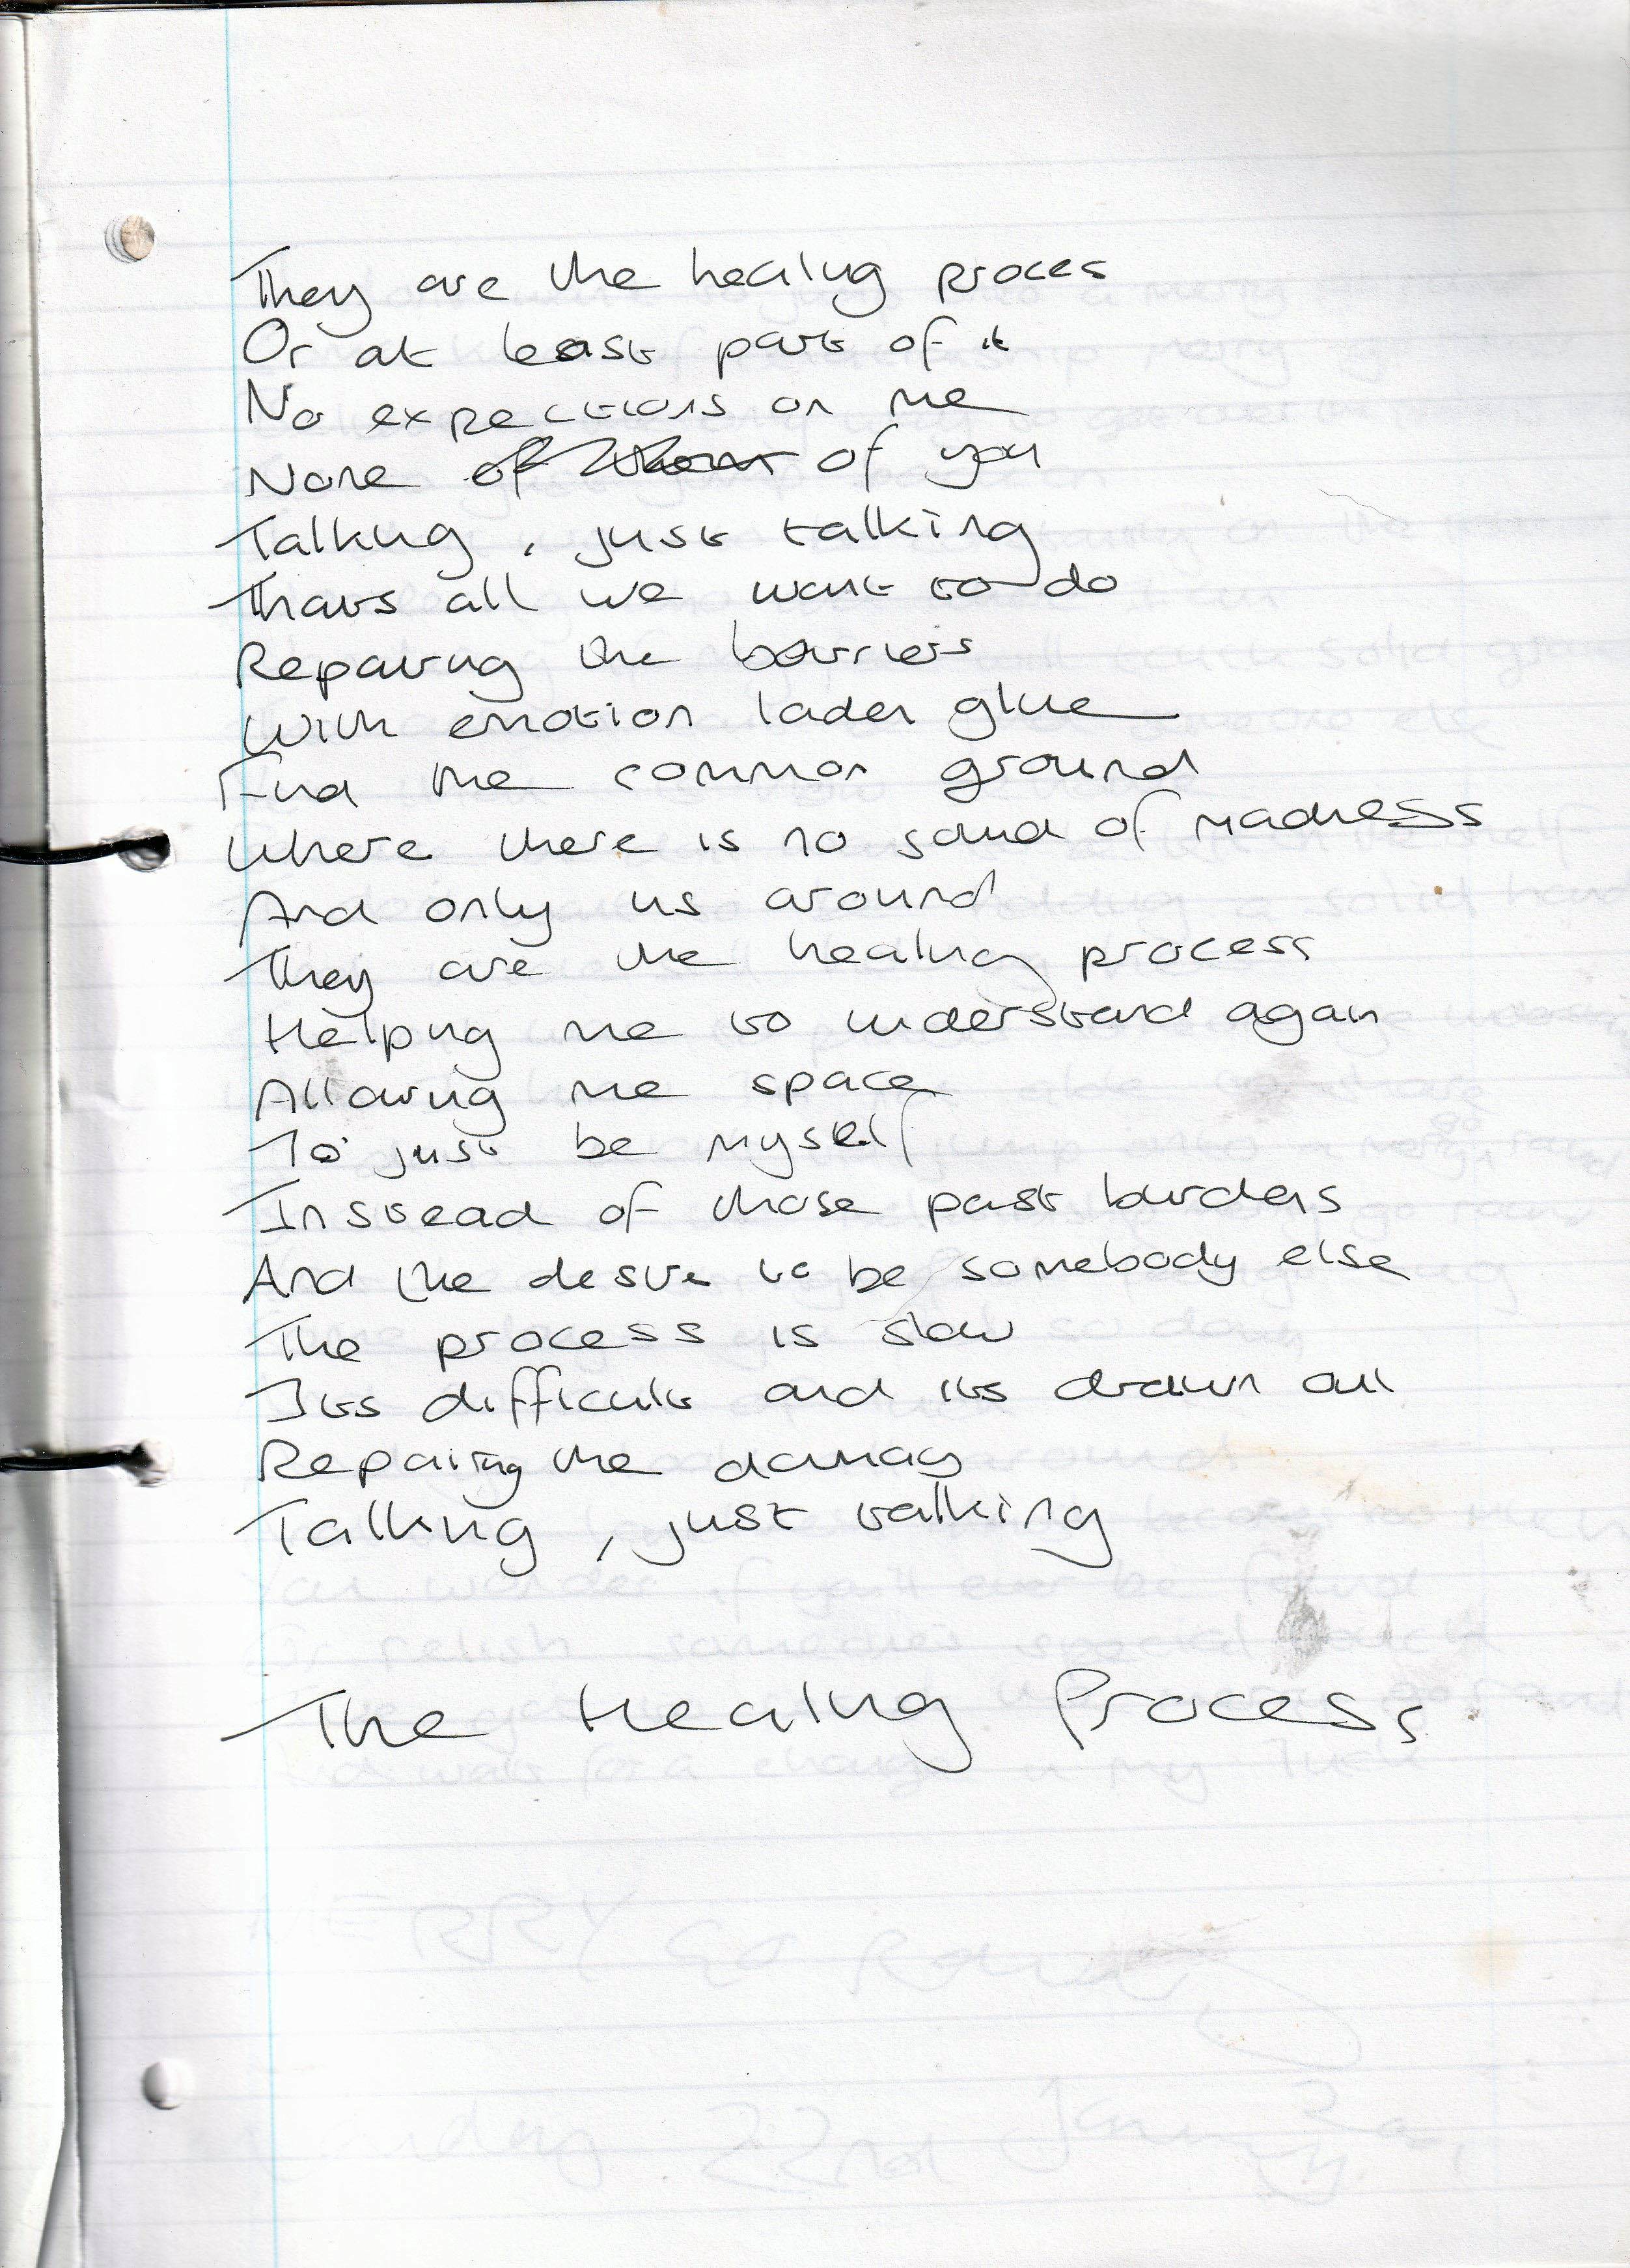 They are the healing proces
Or at least part of it
No expections on me
None of them of you
Talking, just talking
Thats all we want to do
Repairing the barriers
With emotion laden glue
Find the common ground
Where there is no sound of madness
And only us around
They are the healing process
Helping me to understand again
Allowing me space
To just be myself
Instead of those past burdens
And the desire to be somebody else
The process is slow
Its difficult and its drawn out
Repairing the damage
Talking, just talking
The Healing Process